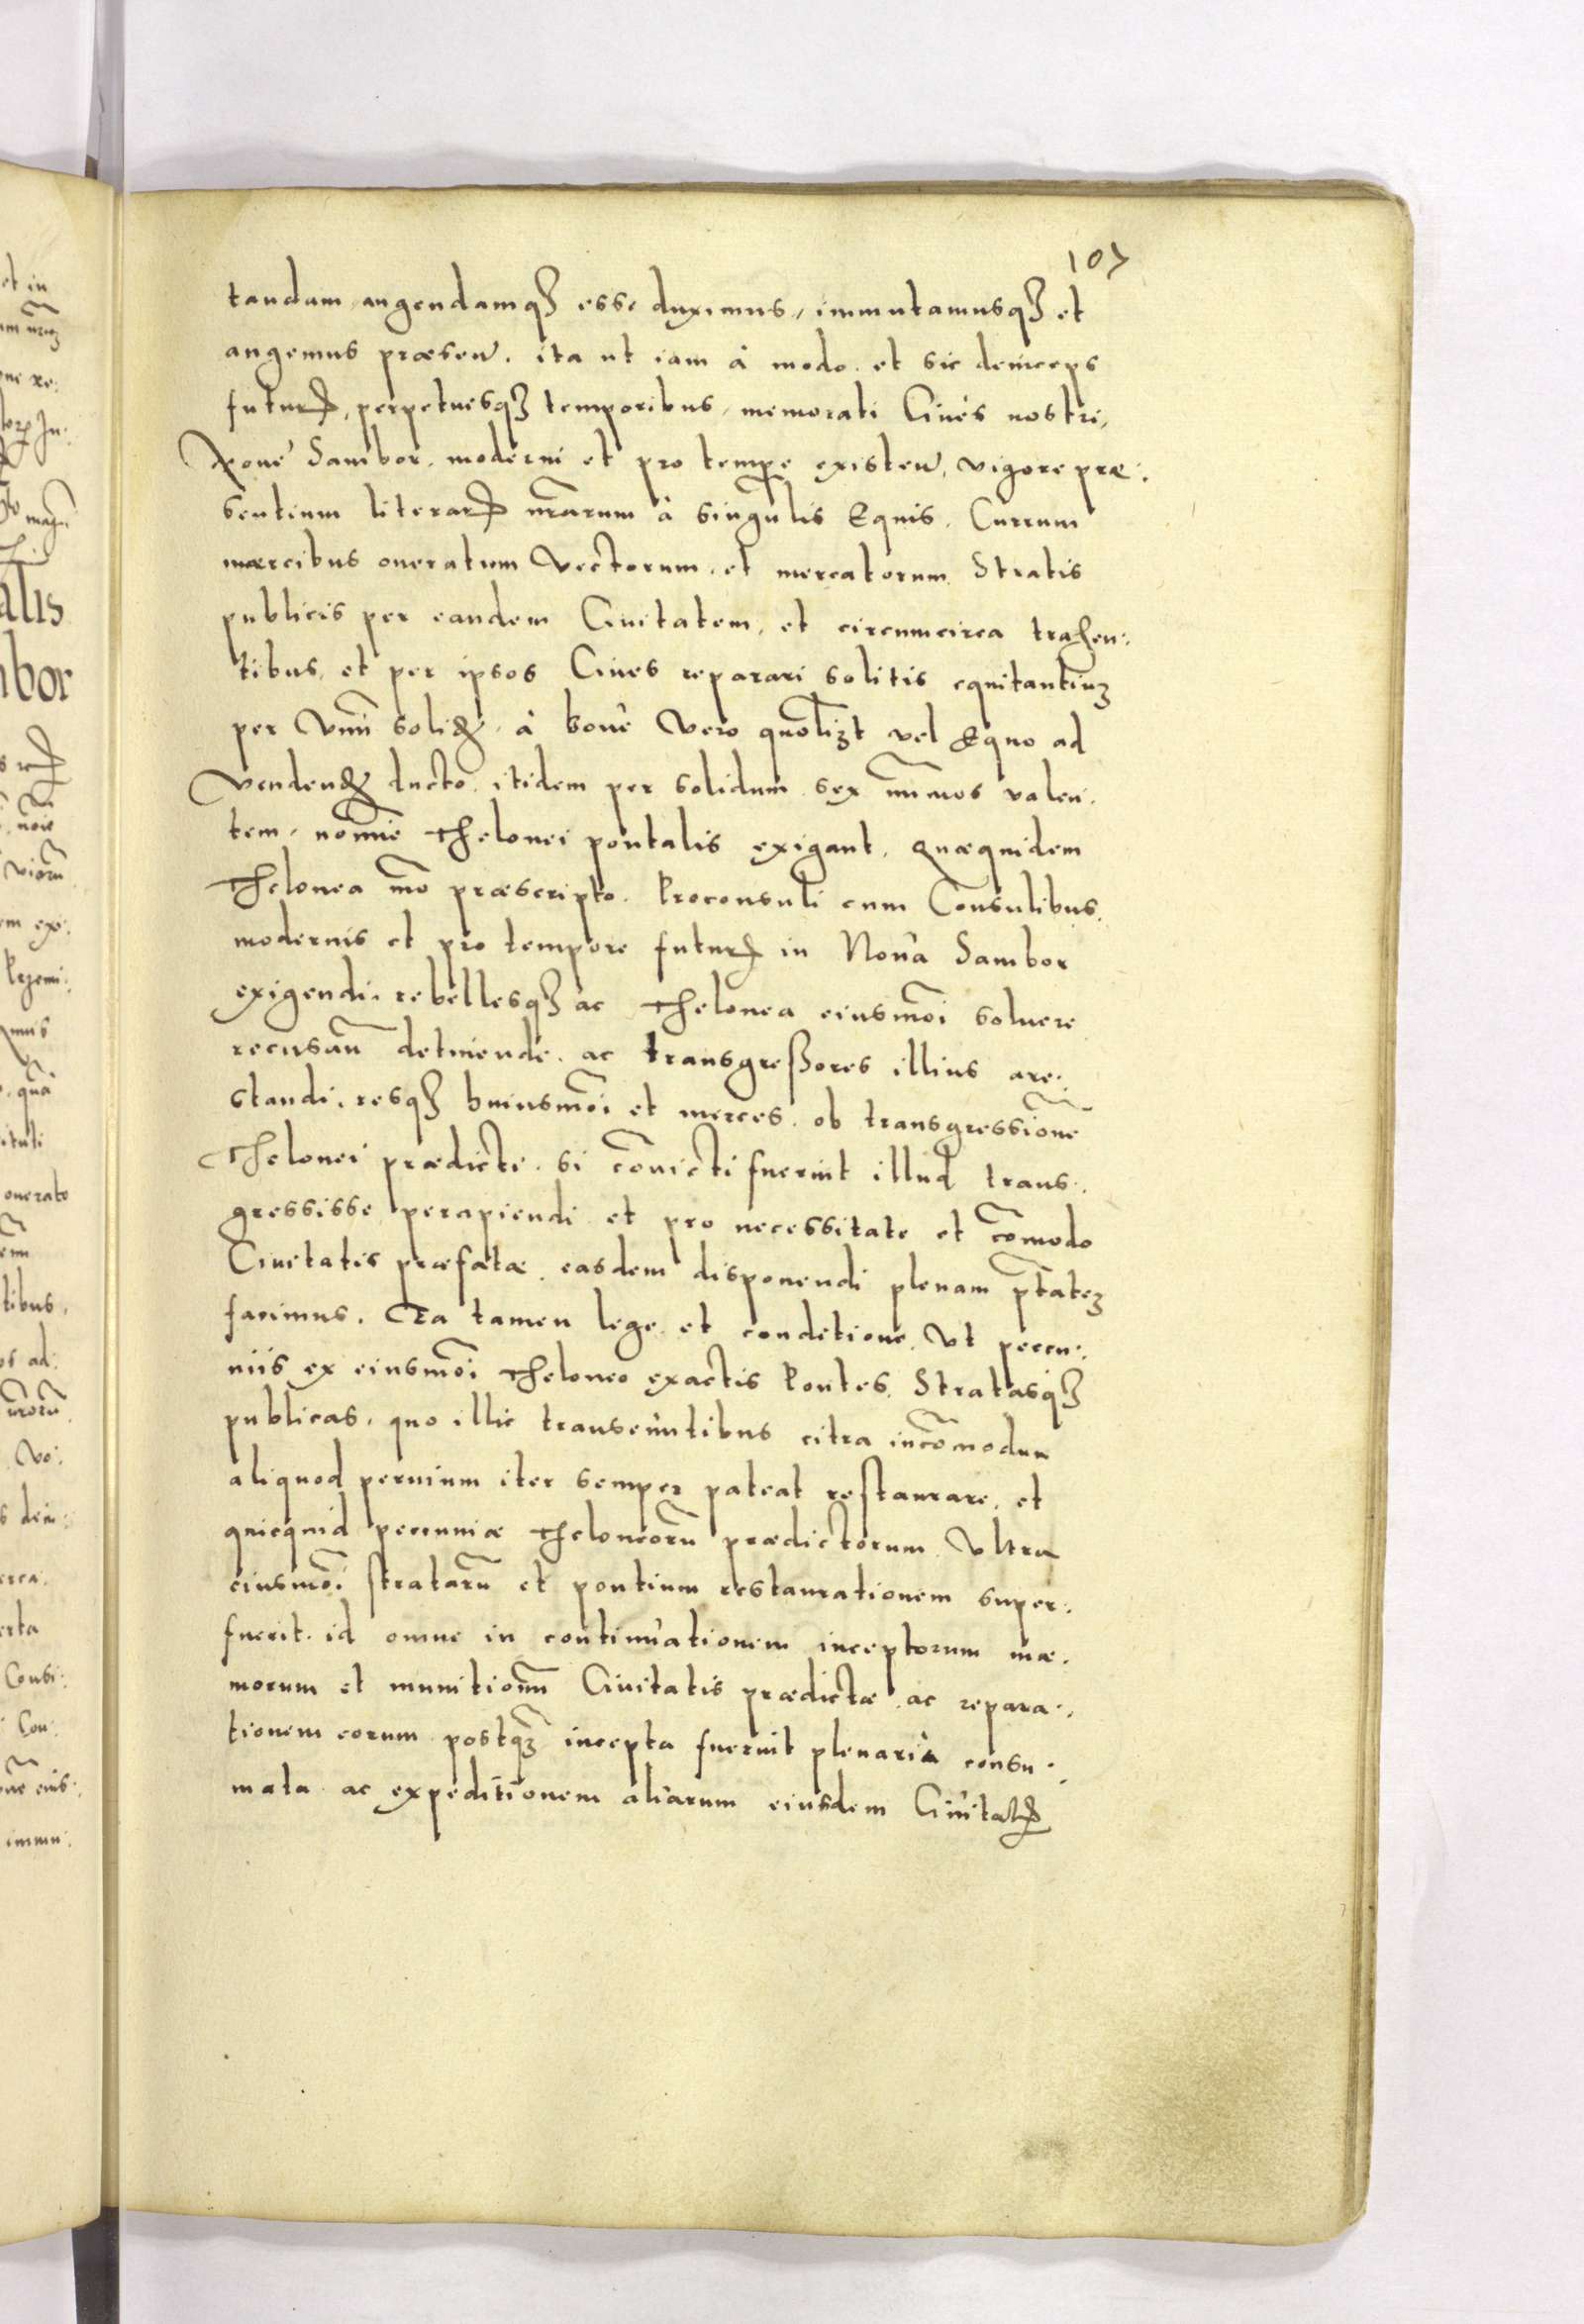 107
tandam, augendamqꝫ esse duximus, immutamusqꝫ et
augemus præsen. ita ut iam à modo. et sic deinceps
futuris, perpetuisqꝫ temporibus, memorati Ciues nostri,
Noue Sambor. moderni et pro tempe existen, vigore præ:
sentium literarꝝ nr̃arum à singulis Equis. Currum
mercibus oneratum Vectorum, et mercatorum Stratis
publicis per eandem Ciuitatem, et circumcirca trahen:
tibus, et per ipsos Ciues reparari solitis equitantiuꝫ
per Vnũ solidꝫ, à boue Vero quolꝫt vel Equo ad
Vendendꝫ ducto, itidem per solidum sex nũmos valen.
tem, noĩe Thelonei pontalis exigant. Quæquidem
Thelonea mõ præscripto. Proconsuli cum Consulibus.
modernis et pro tempore futurꝭ in Noua Sambor
exigendi, rebellesqꝫ ac Thelonea eiusmõi soluere
recusañ detinende. ac transgreßores illius are:
standi, resqꝫ huiusmõi et merces. ob transgressionẽ
Thelonei prædicti. si cõuicti fuerint illud trans:
gressisse, perapiendi et pro necessitate et cõmodo
Ciuitatis præfatæ, easdem disponendi plenam p̃tatẽꝫ
facimus. Ea tamen lege et conditione, Vt pecu:
niis ex eiusmõi Theloneo exactis Pontes, Stratasqꝫ
publicas, quo illic transeuntibus citra incõmodum
aliquod peruium iter semper pateat restaurare, et
quicquid pecuniæ Theloneorũ prædictorum Vltra
eiusmõi stratarũ et pontium restaurationem super:
fuerit. id omne in continuationem inceptorum mæ:
niorum et munitionũ Ciuitatis prædictæ, ac repara:,
tionem eorum postqꝫ incepta fuerint plenariè consu:
mata ac expeditionem aliarum eiusdem Ciuitatꝭ